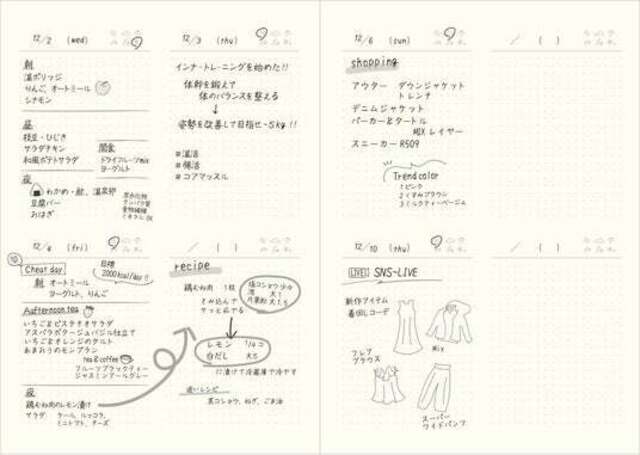 12/2 (wed)
朝
温ポリッジ
りんご オートミール
シナモン
昼
枝豆・ひじき
サラダチキン
和風ポテトサラダ
間食
ドライフルーツmix
ヨーグルト
夜
わかめ・鮭、温泉卵
豆腐バー
おはぎ
炭水化物
タンパク質
食物繊維
ミネラル OK
12/3 (thu)
インナートレーニングを始めた!!
体幹を鍛えて
体のバランスを整える
↓
姿勢を改善して目指せ-5kg!!
#温活
#腸活
#コアマッスル
12/4 (fri)
Cheat day
目標
2000kcal/day!!
朝 オートミール
ヨーグルト、りんご
Aafternoon tea
いちごとピスタチオサラダ
アスパラポタージュバジル仕立て
いちごとオレンジのタルト
あまおうのモンブラン
tea&coffee
フルーツブラックティー
ジャスミンアールグレー
夜
鶏むね肉のレモン漬け
サラダ ケール、ルッコラ、
ミニトマト、チーズ
/ ( )
recipe
鶏むね肉 1枚
塩コショウ 少々
酒 大1
片栗粉 大1.5
もみ込んで
サッと茹でる
レモン 1/4コ
白だし 大5
に漬けて冷蔵庫で冷やす
追いレシピ
黒コショウ、ねぎ、ごま油
12/6 (sun)
shopping
アウター ダウンジャケット
トレンチ
デニムジャケット
パーカー&タートル
MIX レイヤー
スニーカー R509
Trend color
1 ピンク
2 くすみブラウン
3 ミルクティーベージュ
/ ( )
12/10 (thu)
LIVE! SNS-LIVE
新作アイテム
着回しコーデ
Mix
フレア
ブラウス
スーパー
ワイドパンツ